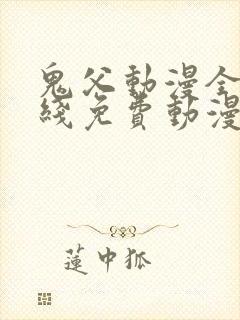 鬼父動漫全
綫免費動漫
蓮中狐